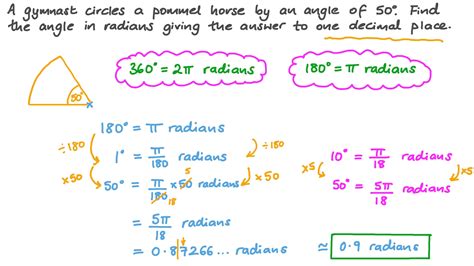 A gymnast circles a pommel horse by an angle of 50°. Find
the angle in radians giving the answer to one decimal place.
50°
360° = 2π radians
180° = π radians
180° = π radians
÷180
÷180
1° = π/180 radians
×50
×50
50° = π/180 × 50 radians
5
18
= 5π/18 radians
= 0.87266... radians
≃ 0.9 radians
10° = π/18 radians
×5
×5
50° = 5π/18 radians